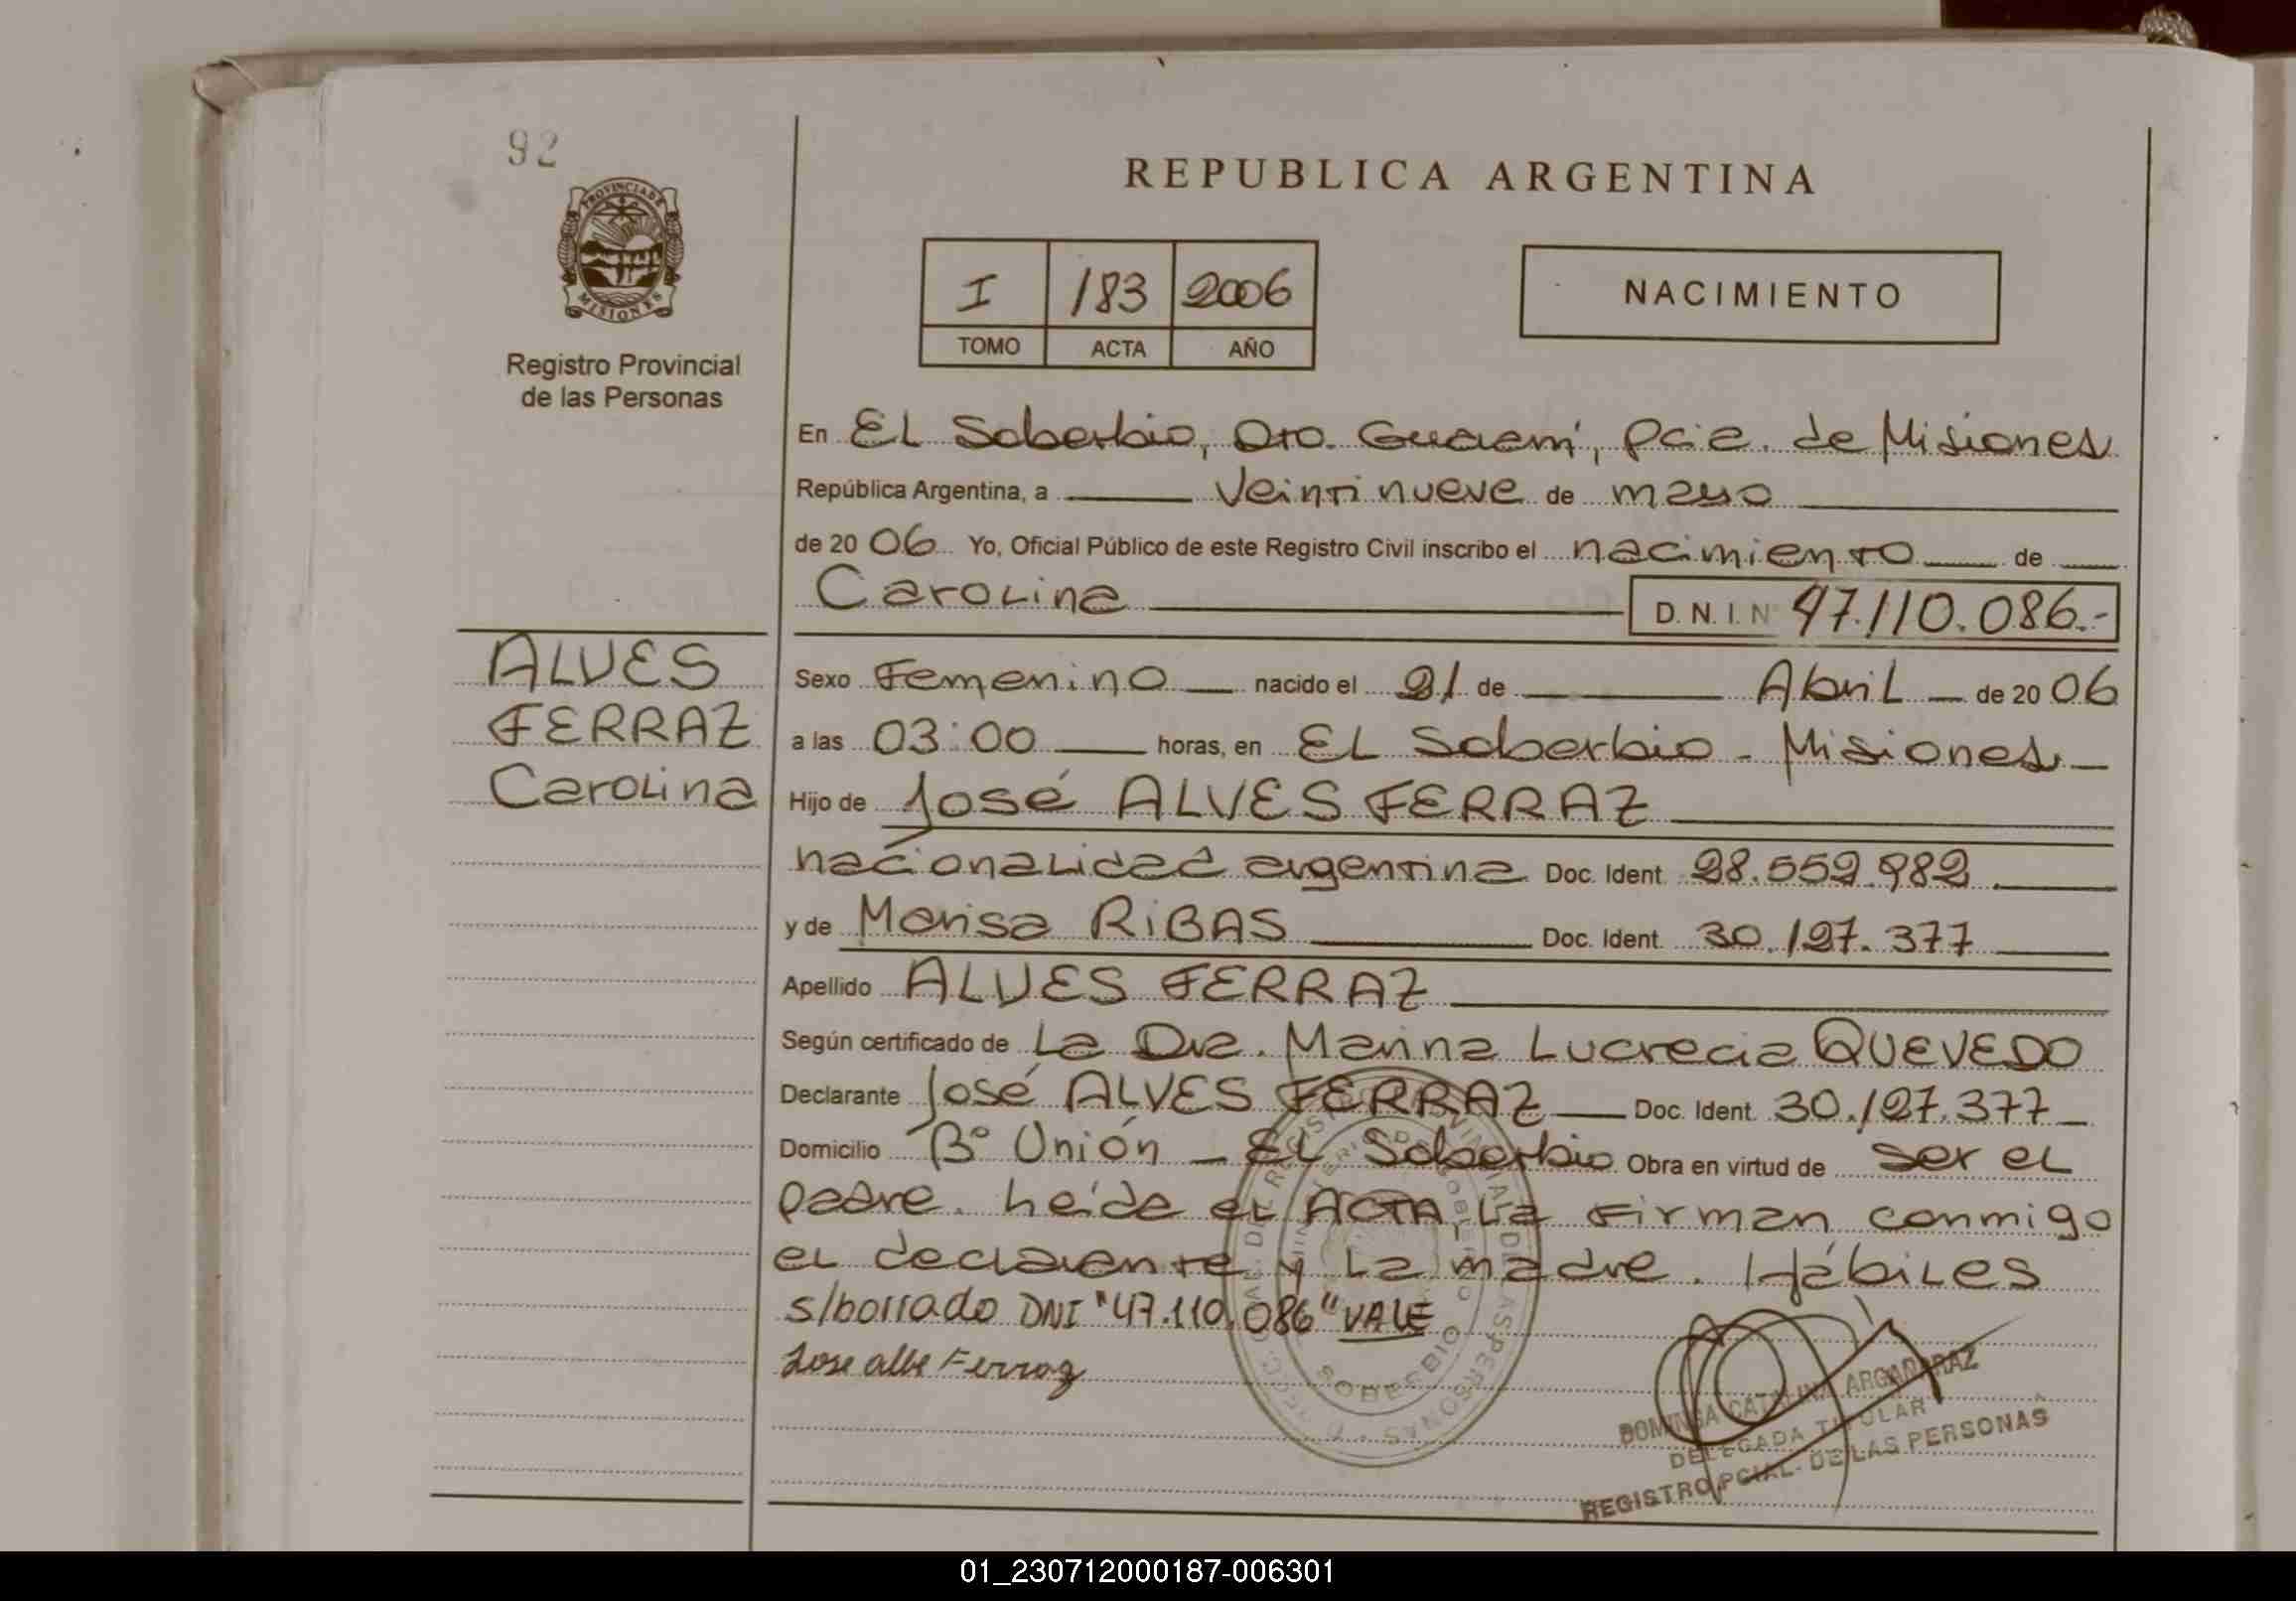 92
PROVINCIA DE
MISIONES
Registro Provincial
de las Personas
REPUBLICA ARGENTINA
I 183 2006
TOMO ACTA AÑO
NACIMIENTO
En El Soberbio, Dto. Guaraní, Pcia. de Misiones
República Argentina, a veintinueve de mayo
de 2006 Yo, Oficial Público de este Registro Civil inscribo el nacimiento de
Carolina D.N.I. Nº 47.110.086.-
ALVES
FERRAZ
Carolina
Sexo Femenino nacido el 21 de Abril de 2006
a las 03:00 horas, en El Soberbio - Misiones
Hijo de José ALVES FERRAZ
nacionalidad argentina Doc. Ident. 28.552.982
y de Marisa RIBAS Doc. Ident. 30.127.377
Apellido ALVES FERRAZ
Según certificado de La Dra. Marina Lucrecia QUEVEDO
Declarante José ALVES FERRAZ Doc. Ident. 30.127.377
Domicilio Bº Unión - El Soberbio Obra en virtud de ser el
padre. Leída el ACTA, la firman conmigo
el declarante y la madre. Hábiles
s/borrado DNI "47.110.086" VALE
Jose albe Ferraz
SOBERBIO
DOMINGA CATALINA ARGAÑARAZ
DELEGADA TITULAR
REGISTRO PCIAL. DE LAS PERSONAS
01_230712000187-006301